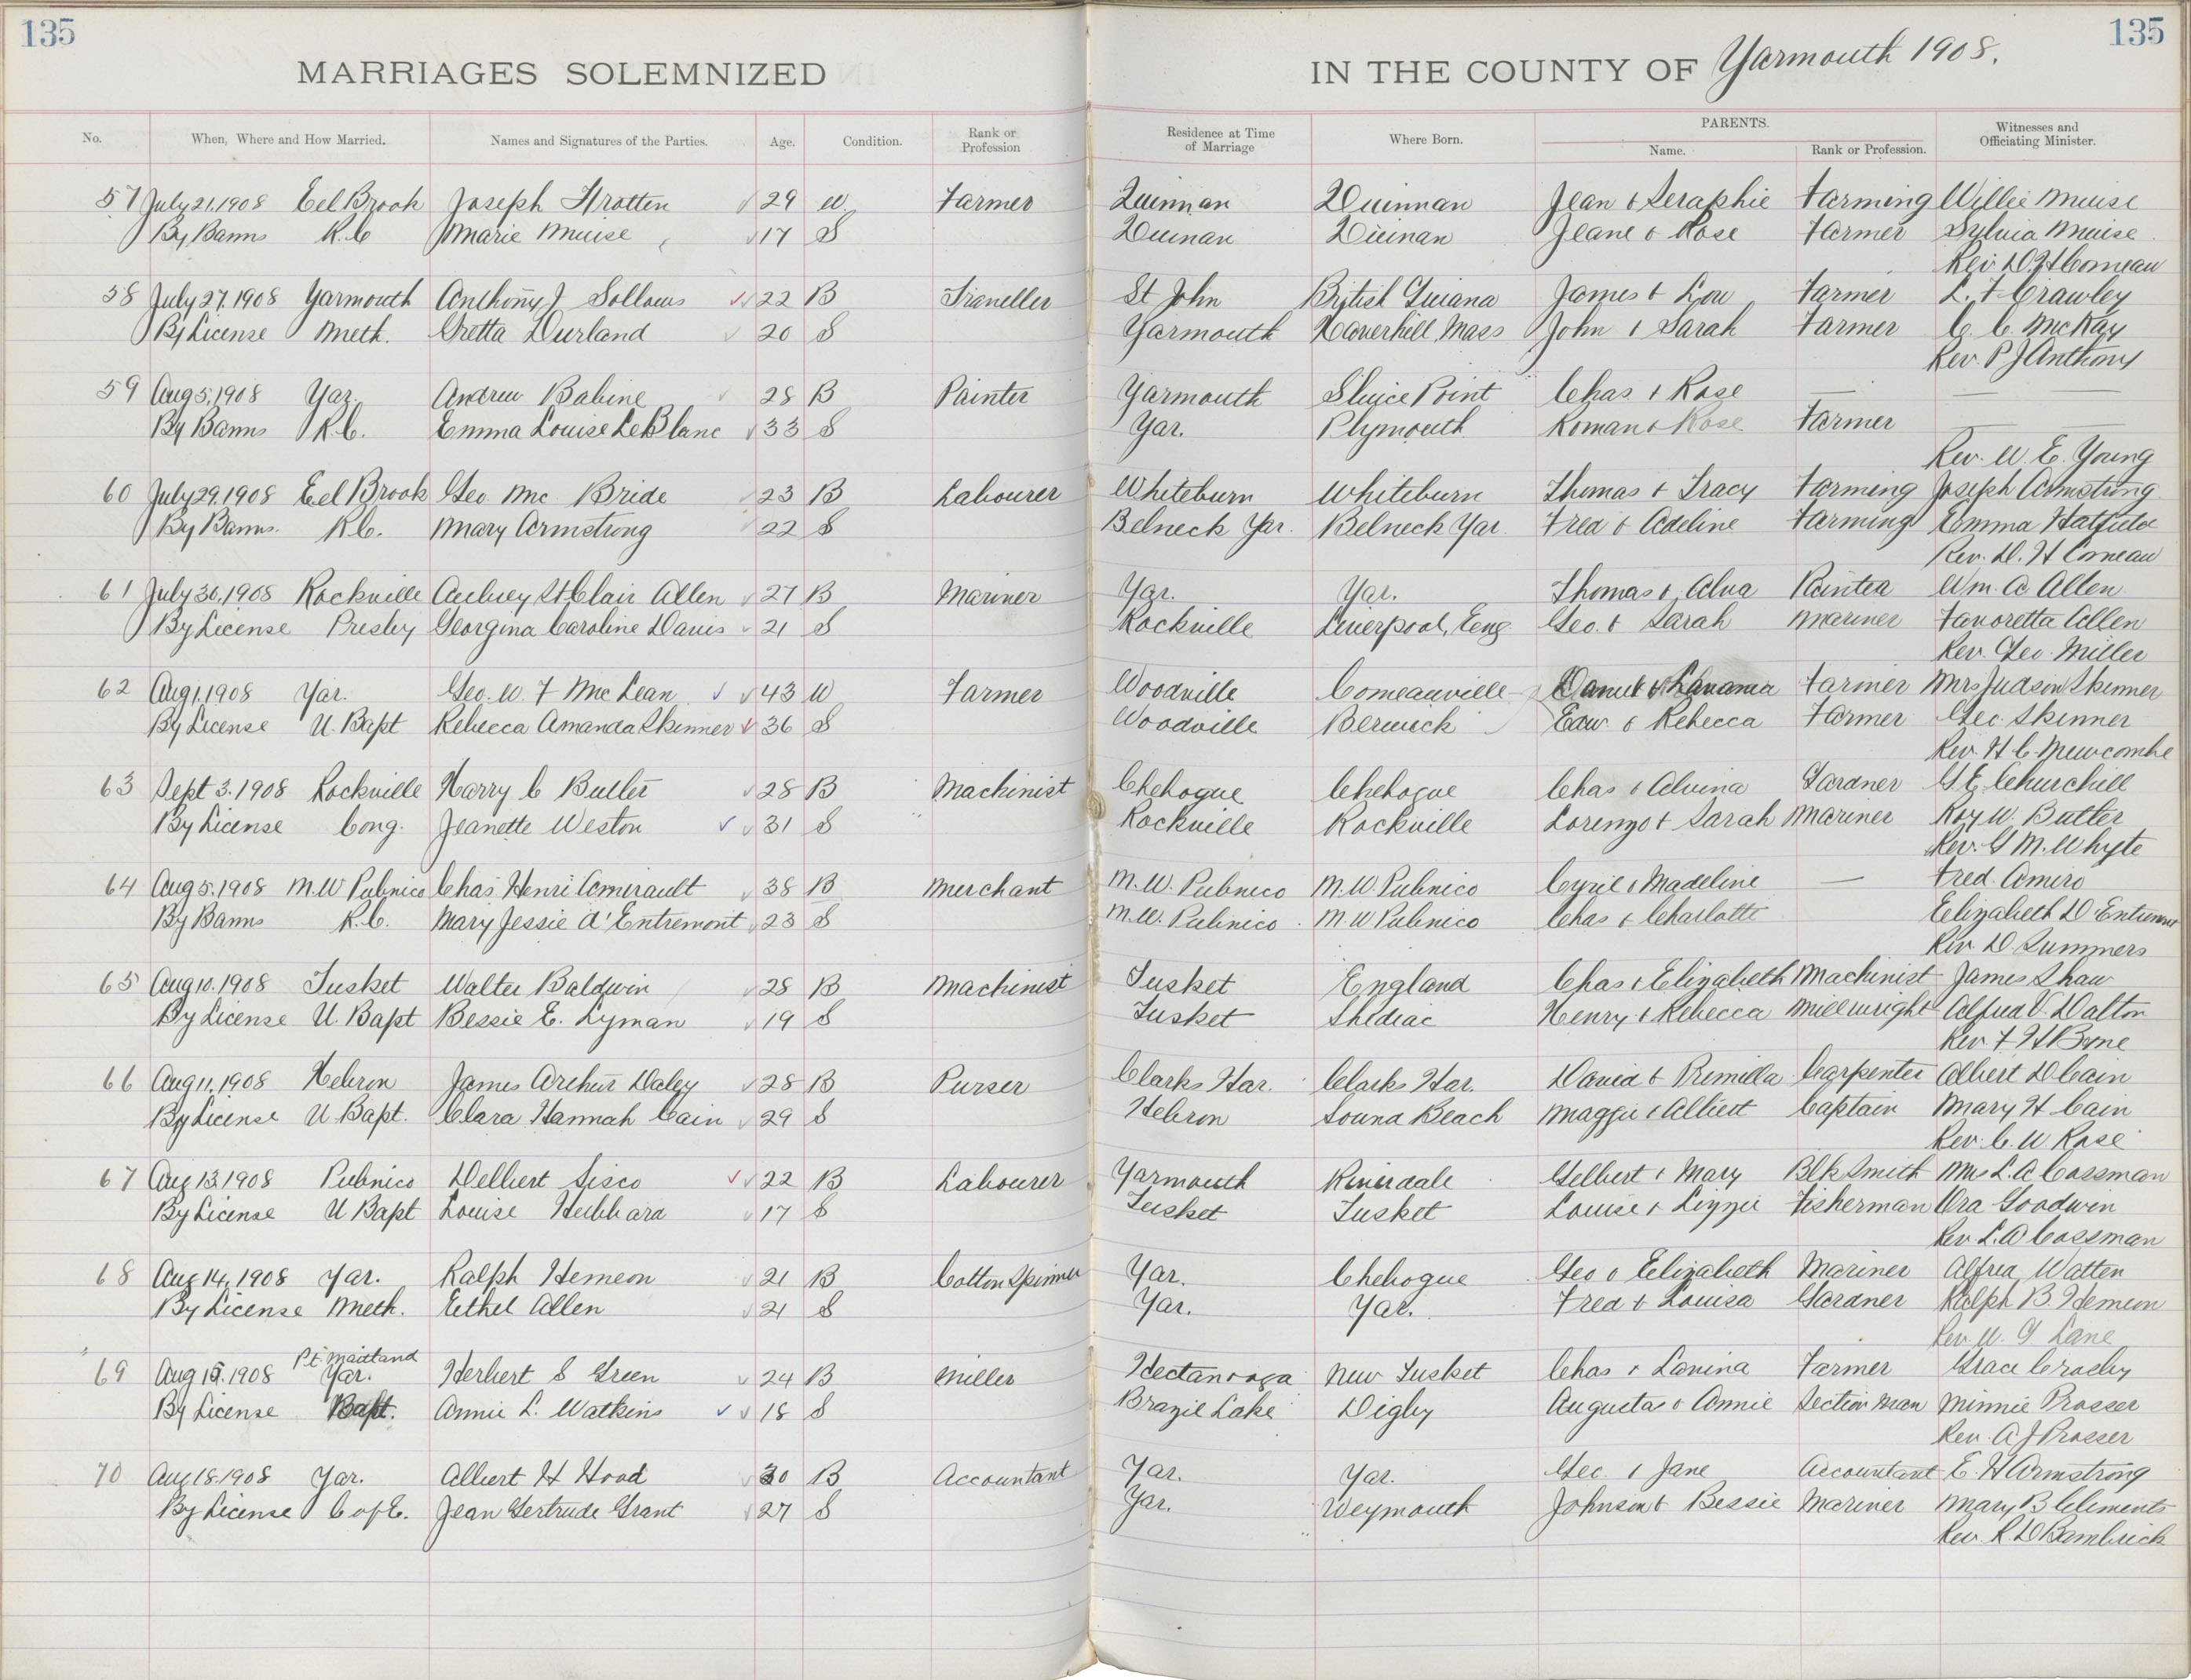 135
135
MARRIAGES SOLEMNIZED
IN THE COUNTY OF Yarmouth 1908.
No. When, Where and How Married. Names and Signatures of the Parties. Age. Condition. Rank or Profession Residence at Time of Marriage Where Born. PARENTS. Name. Rank or Profession. Witnesses and Officiating Minister.
57 July 21, 1908 Eel Brook Joseph Frotten 29 W Farmer Quinnan Quinnan Jean & Seraphie Farming Willie Muise
By Banns R.C Marie Muise 17 S Quinan Quinan Jeane & Rose Farmer Sylvia Muise
Rev D. H Comeau
58 July 27, 1908 Yarmouth Anthony J Sollows 22 B Traveller St John British Guiana James & Lou Farmer L. F Crawley
By License Meth. Gretta Durland 20 S Yarmouth Haverhill, Mass John & Sarah Farmer C. C. McKay
Rev. P J Anthony
59 Aug 5, 1908 Yar. Andrew Babine 28 B Painter Yarmouth Sluice Point Chas & Rose — — —
By Banns R.C. Emma Louise LeBlanc 33 S Yar. Plymouth Roman & Rose Farmer — —
Rev. W. E. Young
60 July 29, 1908 Eel Brook Geo. Mc Bride 23 B Labourer Whiteburn Whiteburn Thomas & Tracy Farming Joseph Armstrong
By Banns. R.C. Mary Armstrong 22 S Belneck Yar. Belneck Yar. Fred & Adeline Farming Emma Hatfield
Rev. D. H Comeau
61 July 30, 1908 Rockville Aubrey St Clair Allen 27 B Mariner Yar. Yar. Thomas & Alva Painter Wm. A Allen
By License Presby Georgina Caroline Davis 21 S Rockville Liverpool, Eng Geo. & Sarah Mariner Favoretta Allen
Rev. Geo. Miller
62 Aug 1, 1908 Yar. Geo. W. F McLean 43 W Farmer Woodville Comeauville Daniel & Farmer Mrs Judson Skinner
By License U. Bapt Rebecca Amanda Skinner 36 S Woodville Berwick Edw. & Rebecca Farmer Geo. Skinner
Rev. H C Newcombe
63 Sept 3. 1908 Rockville Harry C Butler 28 B Machinist Chebogue Chebogue Chas & Alvina Gardner G. E. Churchill
By License Cong. Jeanette Weston 31 S Rockville Rockville Lorenzo & Sarah Mariner Roy W. Butler
Rev. G M. Whyte
64 Aug 5, 1908 M.W Pubnico Chas. Henri Amirault 38 B Merchant M.W. Pubnico M.W. Pubnico Cyril & Madeline — Fred. Amiro
By Banns R.C. Mary Jessie d'Entremont 23 S M.W. Pubnico M.W Pubnico Chas & Charlotte Elizabeth D'Entremont
Rev. D Summers
65 Aug 10. 1908 Tusket Walter Baldwin 28 B Machinist Tusket England Chas & Elizabeth Machinist James Shaw
By License U. Bapt Bessie E. Lyman 19 S Tusket Shediac Henry & Rebecca Millwright Alfred V. Dalton
Rev F. H Bone
66 Aug 11, 1908 Hebron James Arthur Daley 28 B Purser Clarks Har. Clarks Har. David & Permilla Carpenter Albert D Cain
By License U Bapt. Clara Hannah Cain 29 S Hebron Sound Beach Maggie & Albert Captain Mary H Cain
Rev. C. W. Rose
67 Aug 13, 1908 Pubnico Delbert Sisco 22 B Labourer Yarmouth Riverdale Gelbert & Mary Blk Smith Mrs L. A Cossman
By License U Bapt Louise Hubbard 17 S Tusket Tusket Louise & Lizzie Fisherman Ora Goodwin
Rev. L. A Cossman
68 Aug 14, 1908 Yar. Ralph Hemeon 21 B Cotton Spinner Yar. Chebogue Geo & Elizabeth Mariner Alfred Watten
By License Meth. Ethel Allen 21 S Yar. Yar. Fred & Louisa Gardner Ralph B. Hemeon
Rev. W. G Lane
Pt. Maitland
69 Aug 15, 1908 Yar. Herbert S Green 24 B Miller Hectanooga New Tusket Chas & Lavina Farmer Grace Crosby
By License Bapt. Annie L. Watkins 18 S Brazil Lake Digby Augustas & Annie Section Man Minnie Prosser
Rev. A J Prosser
70 Aug 18, 1908 Yar. Albert H Hood 30 B Accountant Yar. Yar. Geo. & Jane Accountant E. H Armstrong
By License C of E. Jean Gertrude Grant 27 S Yar. Weymouth Johnson & Bessie Mariner Mary B Clements
Rev. R. D Bambrick